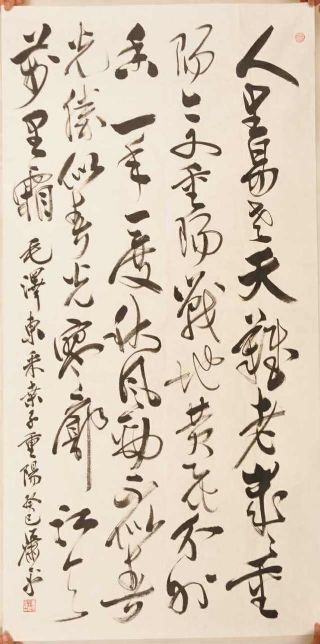 人生易老天難老歲々重
陽今又重陽戰地黄花分外
香一年一度秋風勁不似春
光勝似春光寥廓江天
萬里霜 毛澤東采桑子重陽 癸巳